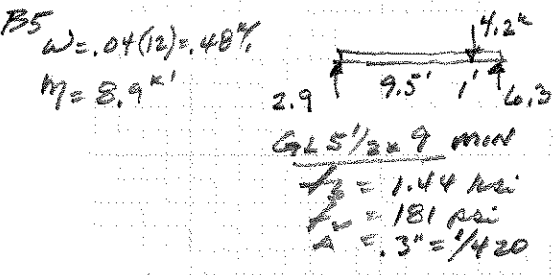 B5
W = .04(12) = .48 k/'
M = 8.9 k'
4.2k
2.9 9.5' 1' 6.3
GL 5 1/2 x 9 MIN
fb = 1.44 ksi
fv = 181 psi
Δ = .3" = l/420